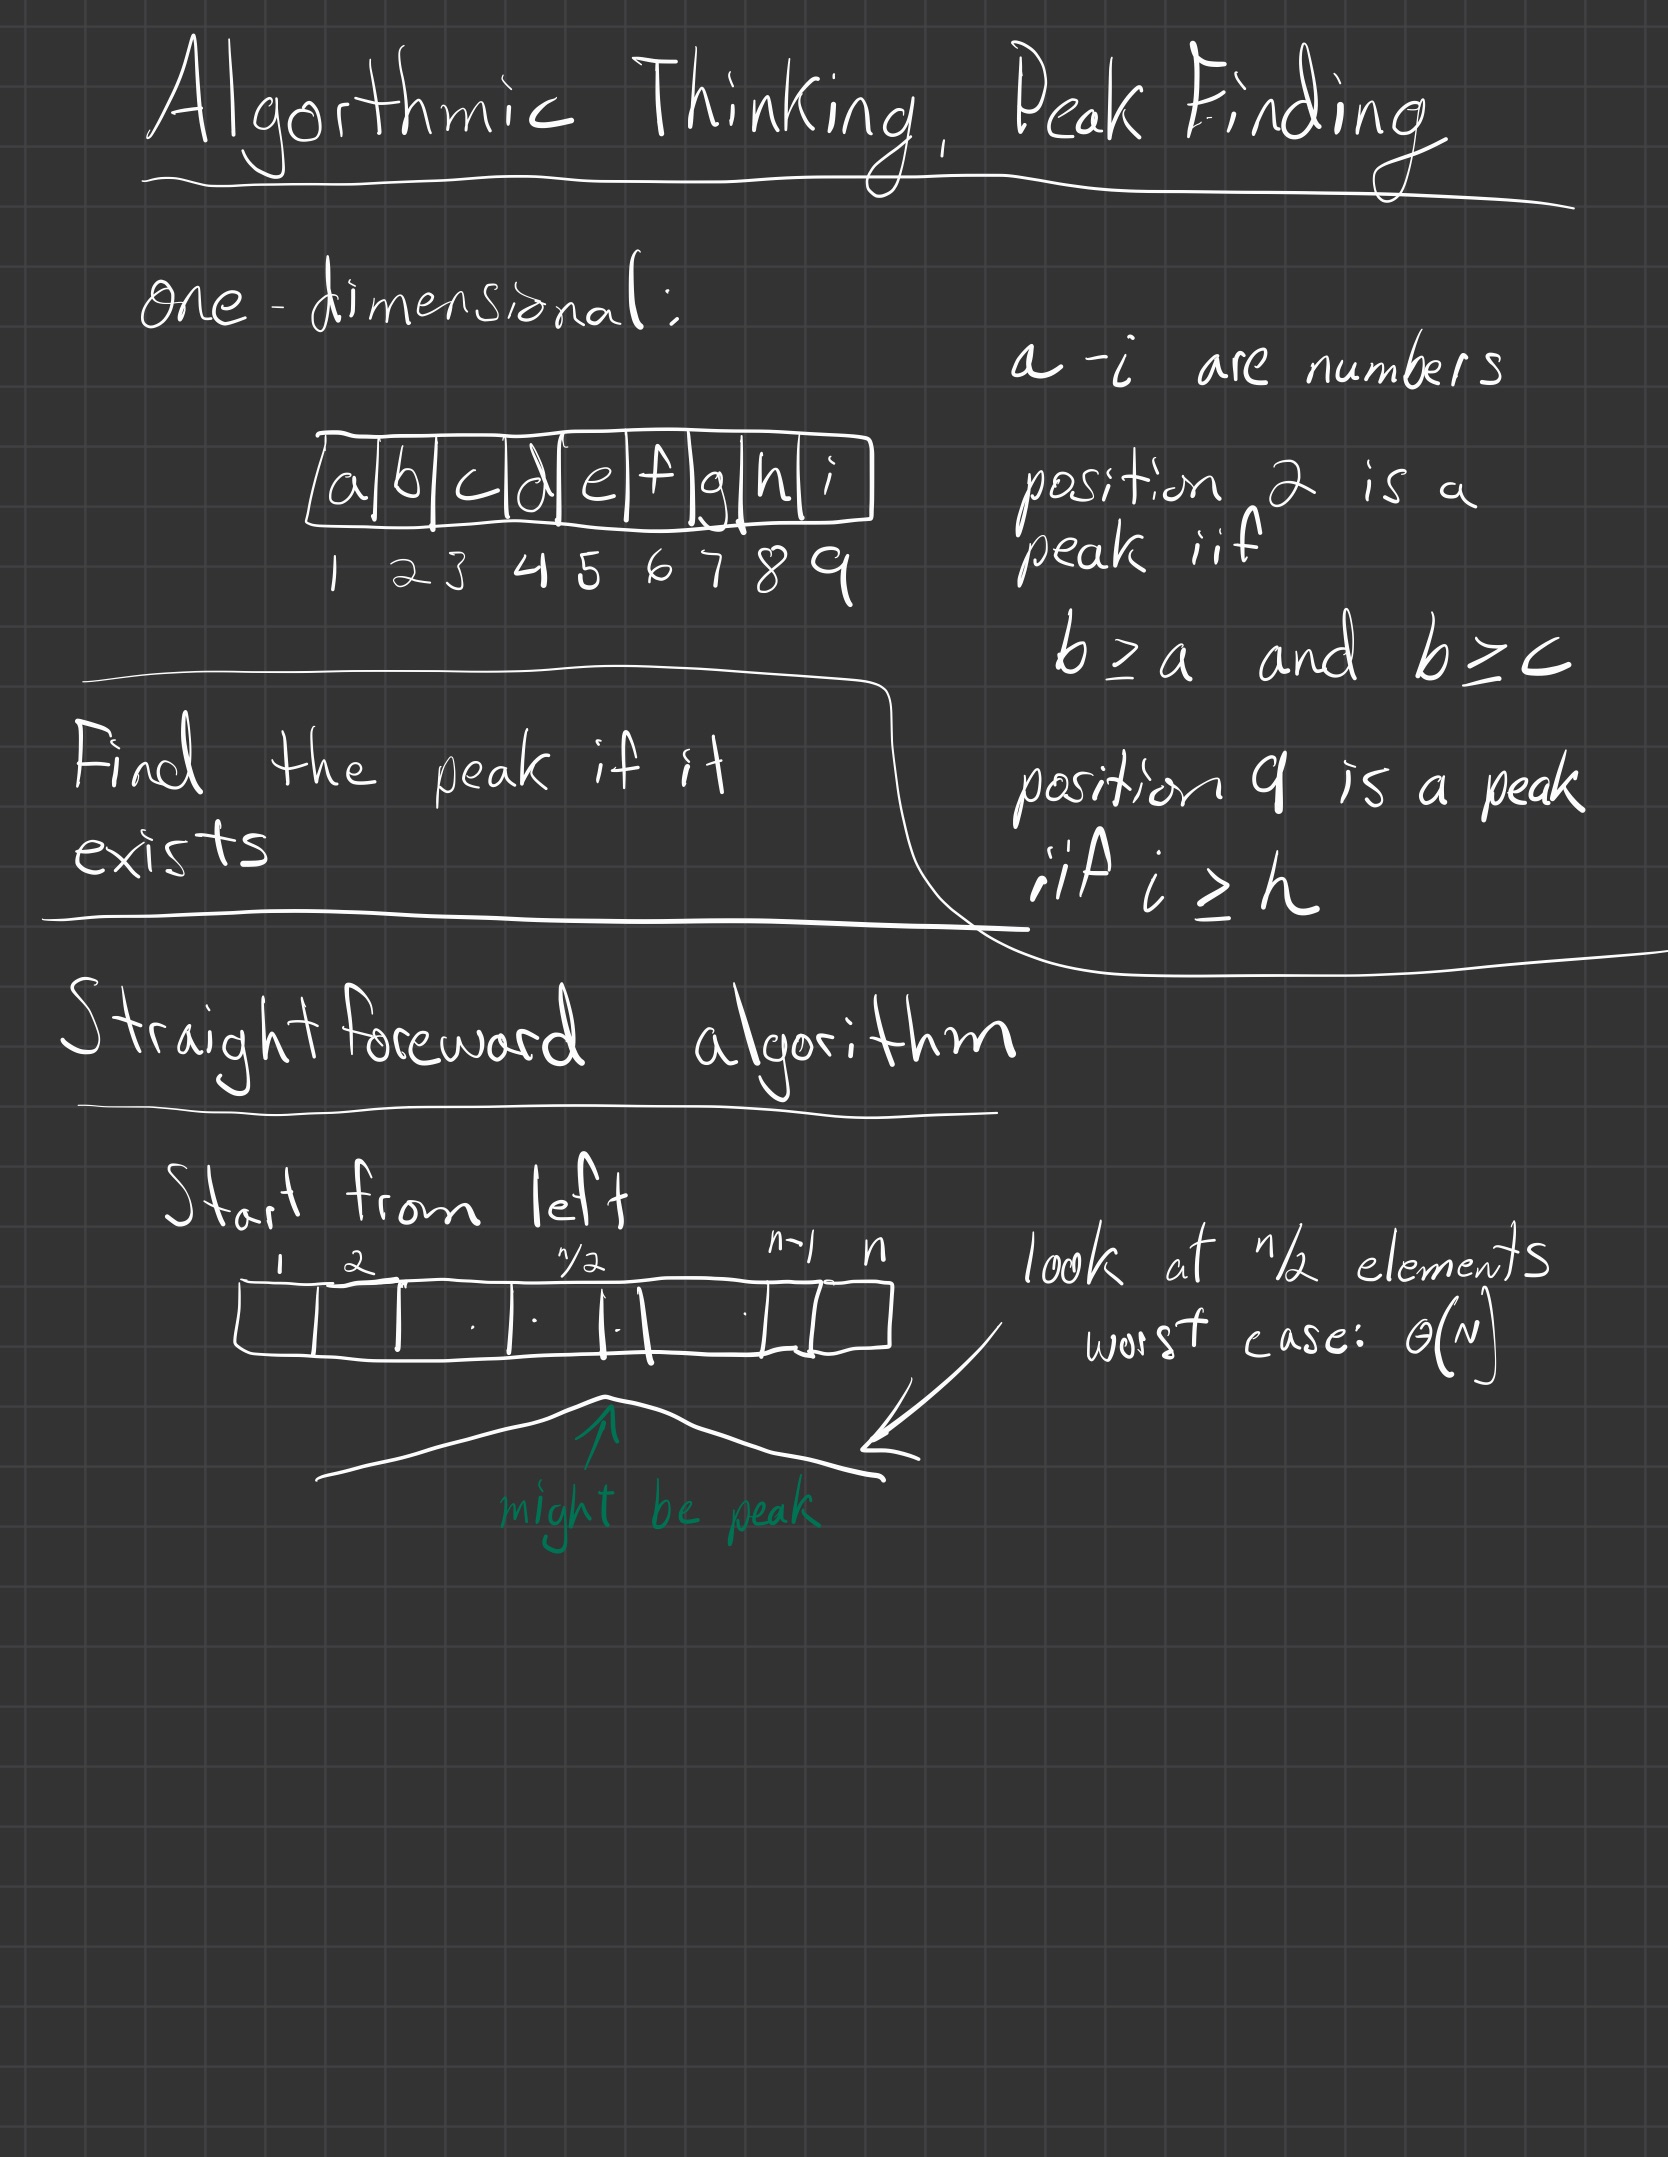 Algorthmic Thinking, Peak Finding
one-dimensional:
a b c d e f g h i
1 2 3 4 5 6 7 8 9
a-i are numbers
position 2 is a
peak iif
b≥a and b≥c
position 9 is a peak
iif i ≥ h
Find the peak if it
exists
Straightforeward algorithm
Start from left
1 2 n/2 n-1 n
look at n/2 elements
worst case: Θ(N)
might be peak